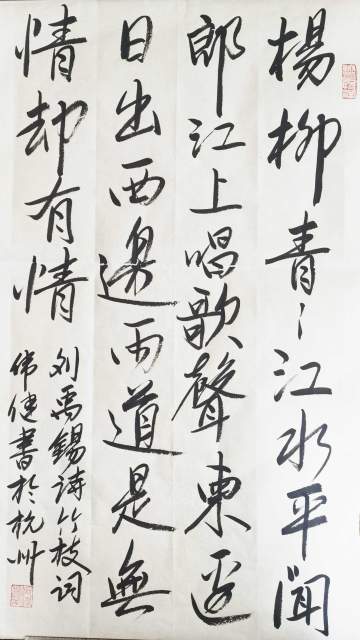 楊柳青〻江水平聞
郎江上唱歌聲東邊
日出西邊雨道是無
情却有情
刘禹錫诗竹枝词
伟健書於杭州